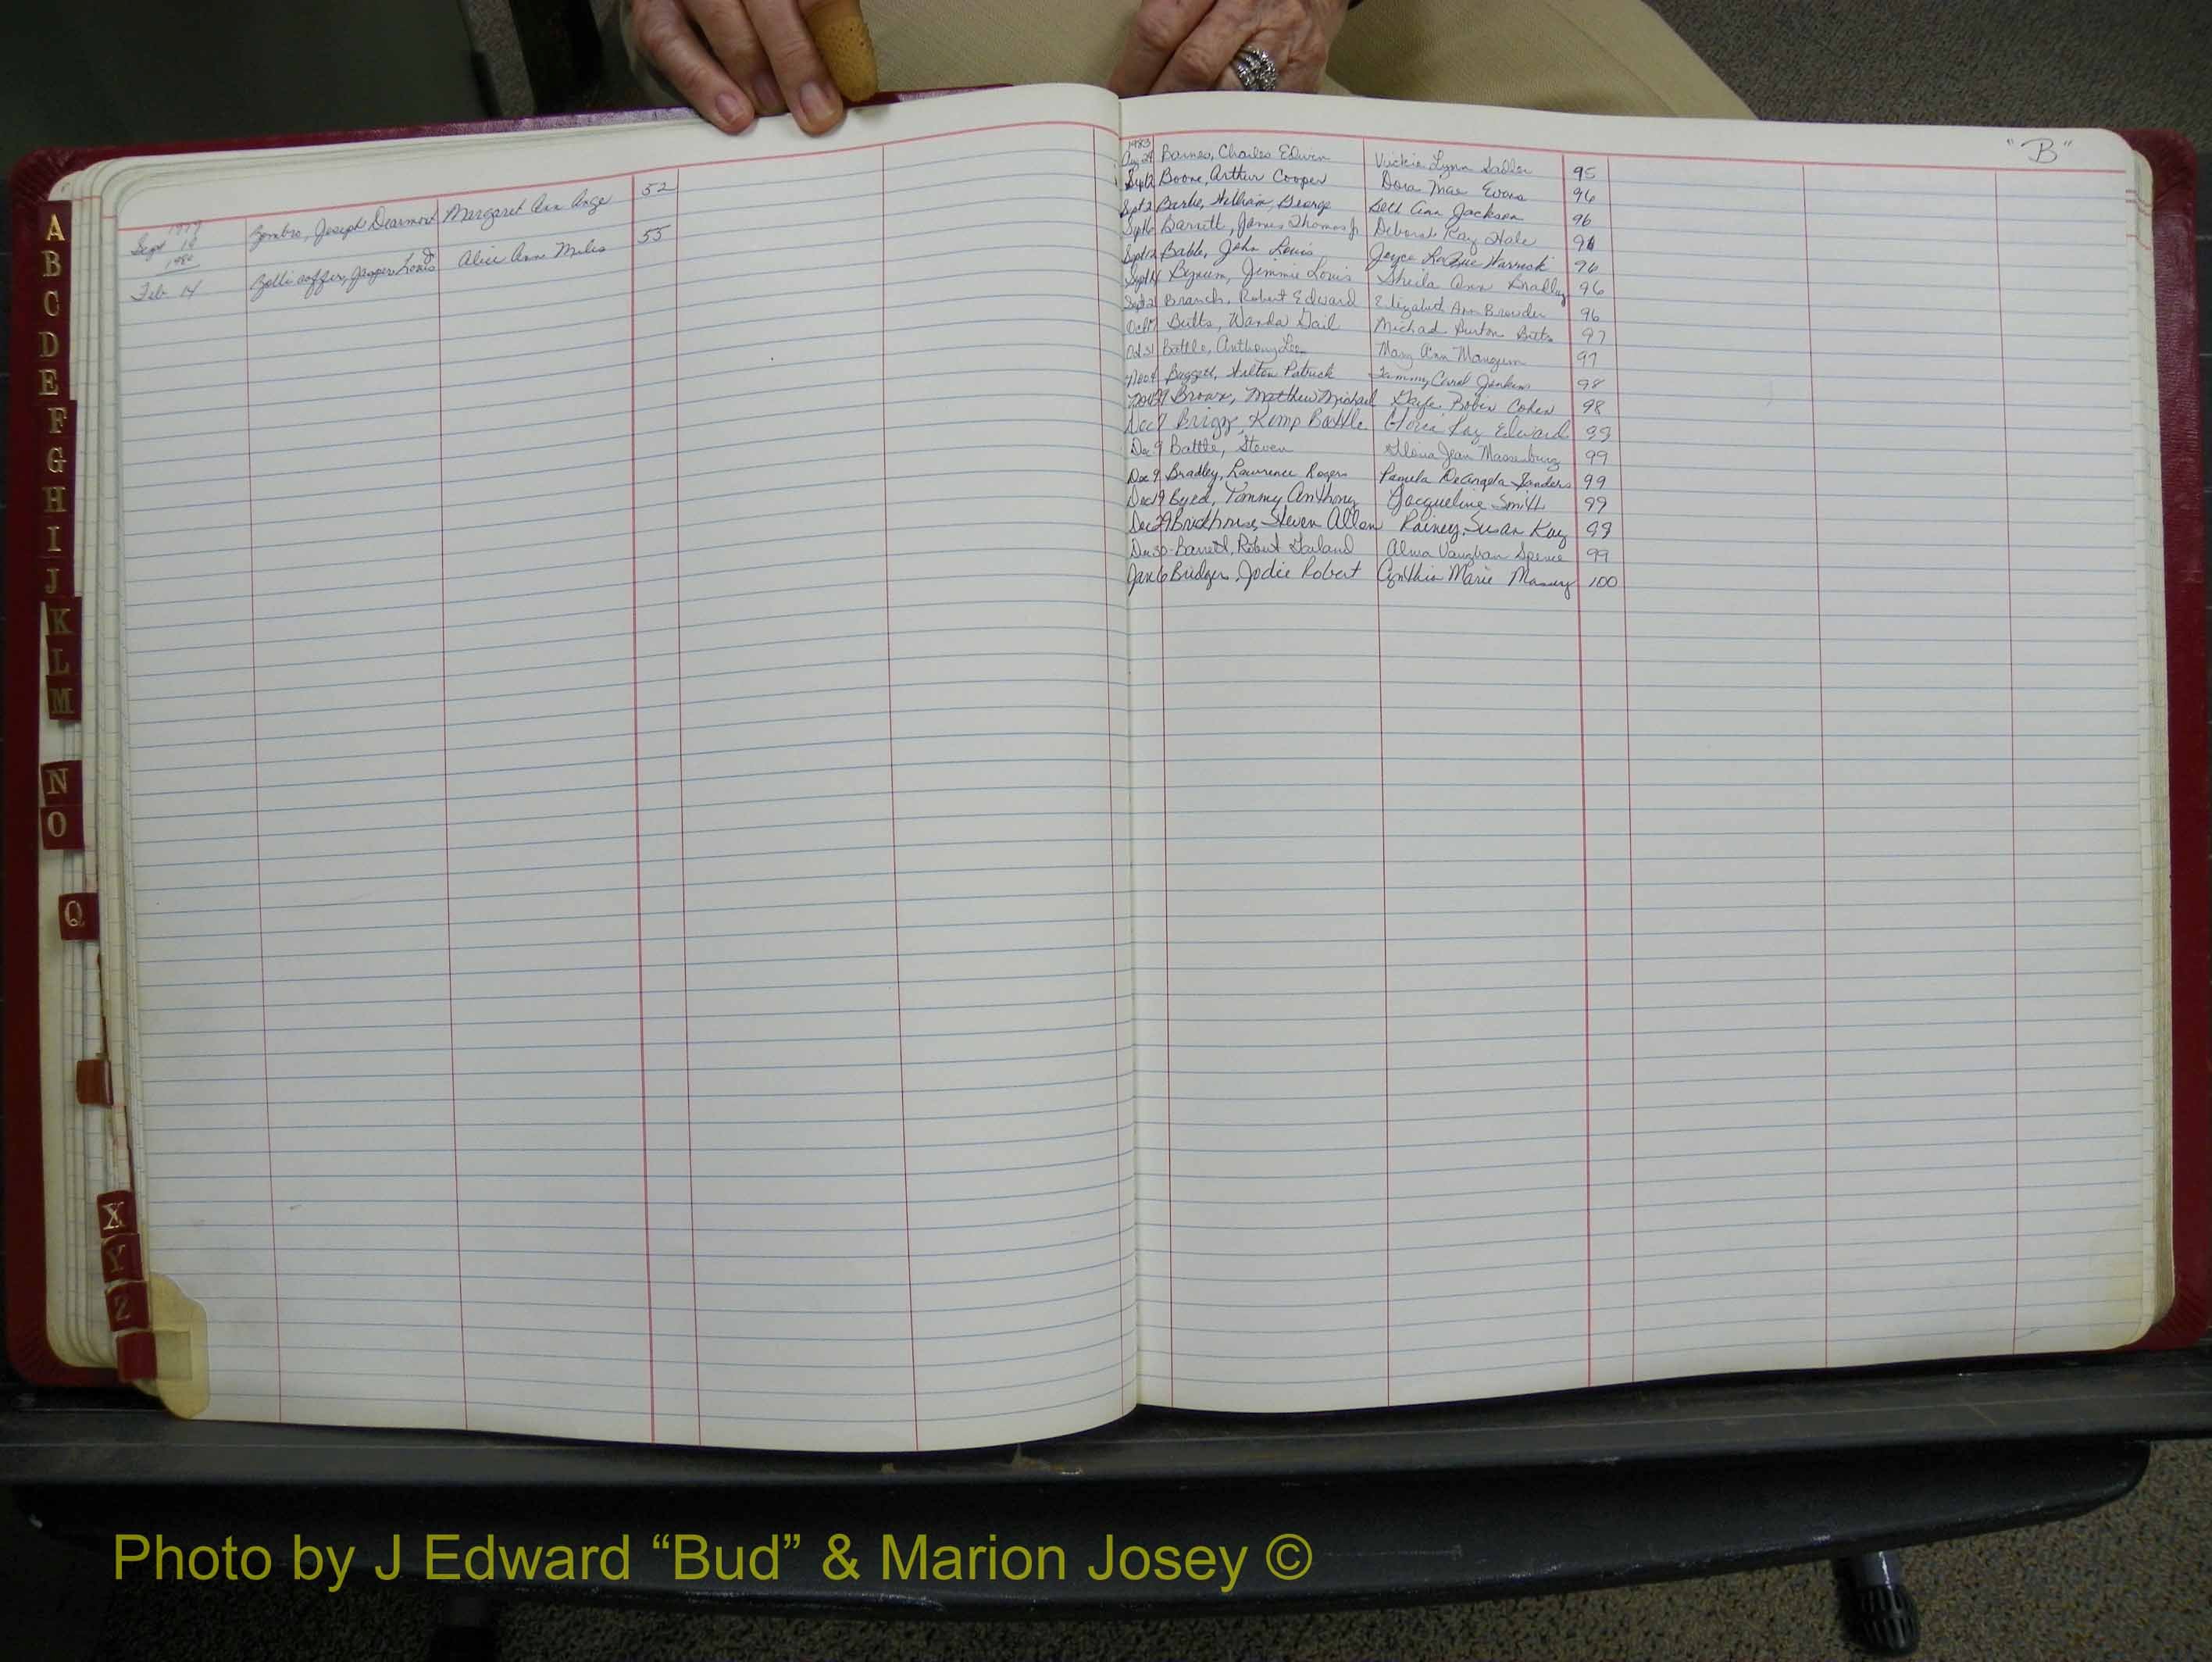 1979
Sept 14 Zombro, Joseph Dearmont Margaret Ann Ange 52
1980
Feb 14 Zollicoffer, Jasper Louis Alice Ann Miles 55
A
B
C
D
E
F
G
H
I
J
K
L
M
N
O
Q
X
Y
Z
"B"
1983
Aug 29 Barnes, Charles Edwin Vickie Lynn Sadler 95
Sept 2 Boone, Arthur Cooper Dora Mae Evans 96
Sept 2 William George Dell Ann Jackson 96
Sept 6 Barrett, James Thomas Jr Deborah Kay Hale 96
Sept 12 Babb, John Louis Joyce Harrick 96
Sept 14 Bynum, Jimmie Louis Sheila Ann Bradley 96
Sept 21 Branch, Robert Edward Elizabeth Ann Browder 96
Oct 17 Butts, Wanda Gail Michael Burton Butts 97
Oct 31 Battle, Anthony Leon Mary Ann Mangum 97
Nov 9 Baggett, Hilton Patrick Tammy Carol Jenkins 98
Nov 29 Brown, Matthew Michael Gayle Robin Cohen 98
Dec 7 Brigg, Kemp Battle Gloria Kay Edward 99
Dec 9 Battle, Steven Gloria Jean Massenburg 99
Dec 9 Bradley, Lawrence Rogers Pamela DeAngela Sanders 99
Dec 19 Byed, Tommy Anthony Jacqueline Smith 99
Dec 29 Bridthouse, Steven Allen Rainey, Susan Kay 99
Dec 30 Barrett, Robert Garland Alma Vaughan Spence 99
Jan 6 Bridgers, Jodie Robert Cynthia Marie Massey 100
Photo by J Edward “Bud” & Marion Josey ©